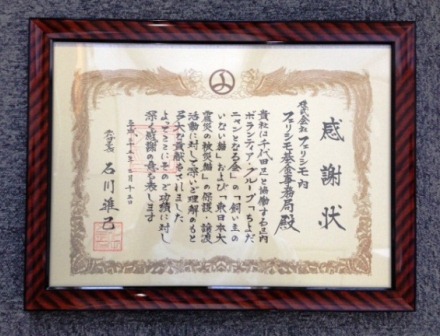 感謝状
株式会社フェリシモ内
フェリシモ基金事務局殿
貴社は千代田区と協働する区内
ボランティア・グループ「ちよだ
ニャンとなる会」の「飼い主の
いない猫」および「東日本大
震災の被災猫」の保護・譲渡
活動に対して深いご理解のもと
多大な貢献をされました
よってここにそのご功績に対し
深く感謝の意を表します
平成二十五年二月十五日
千代田区長 石川雅己